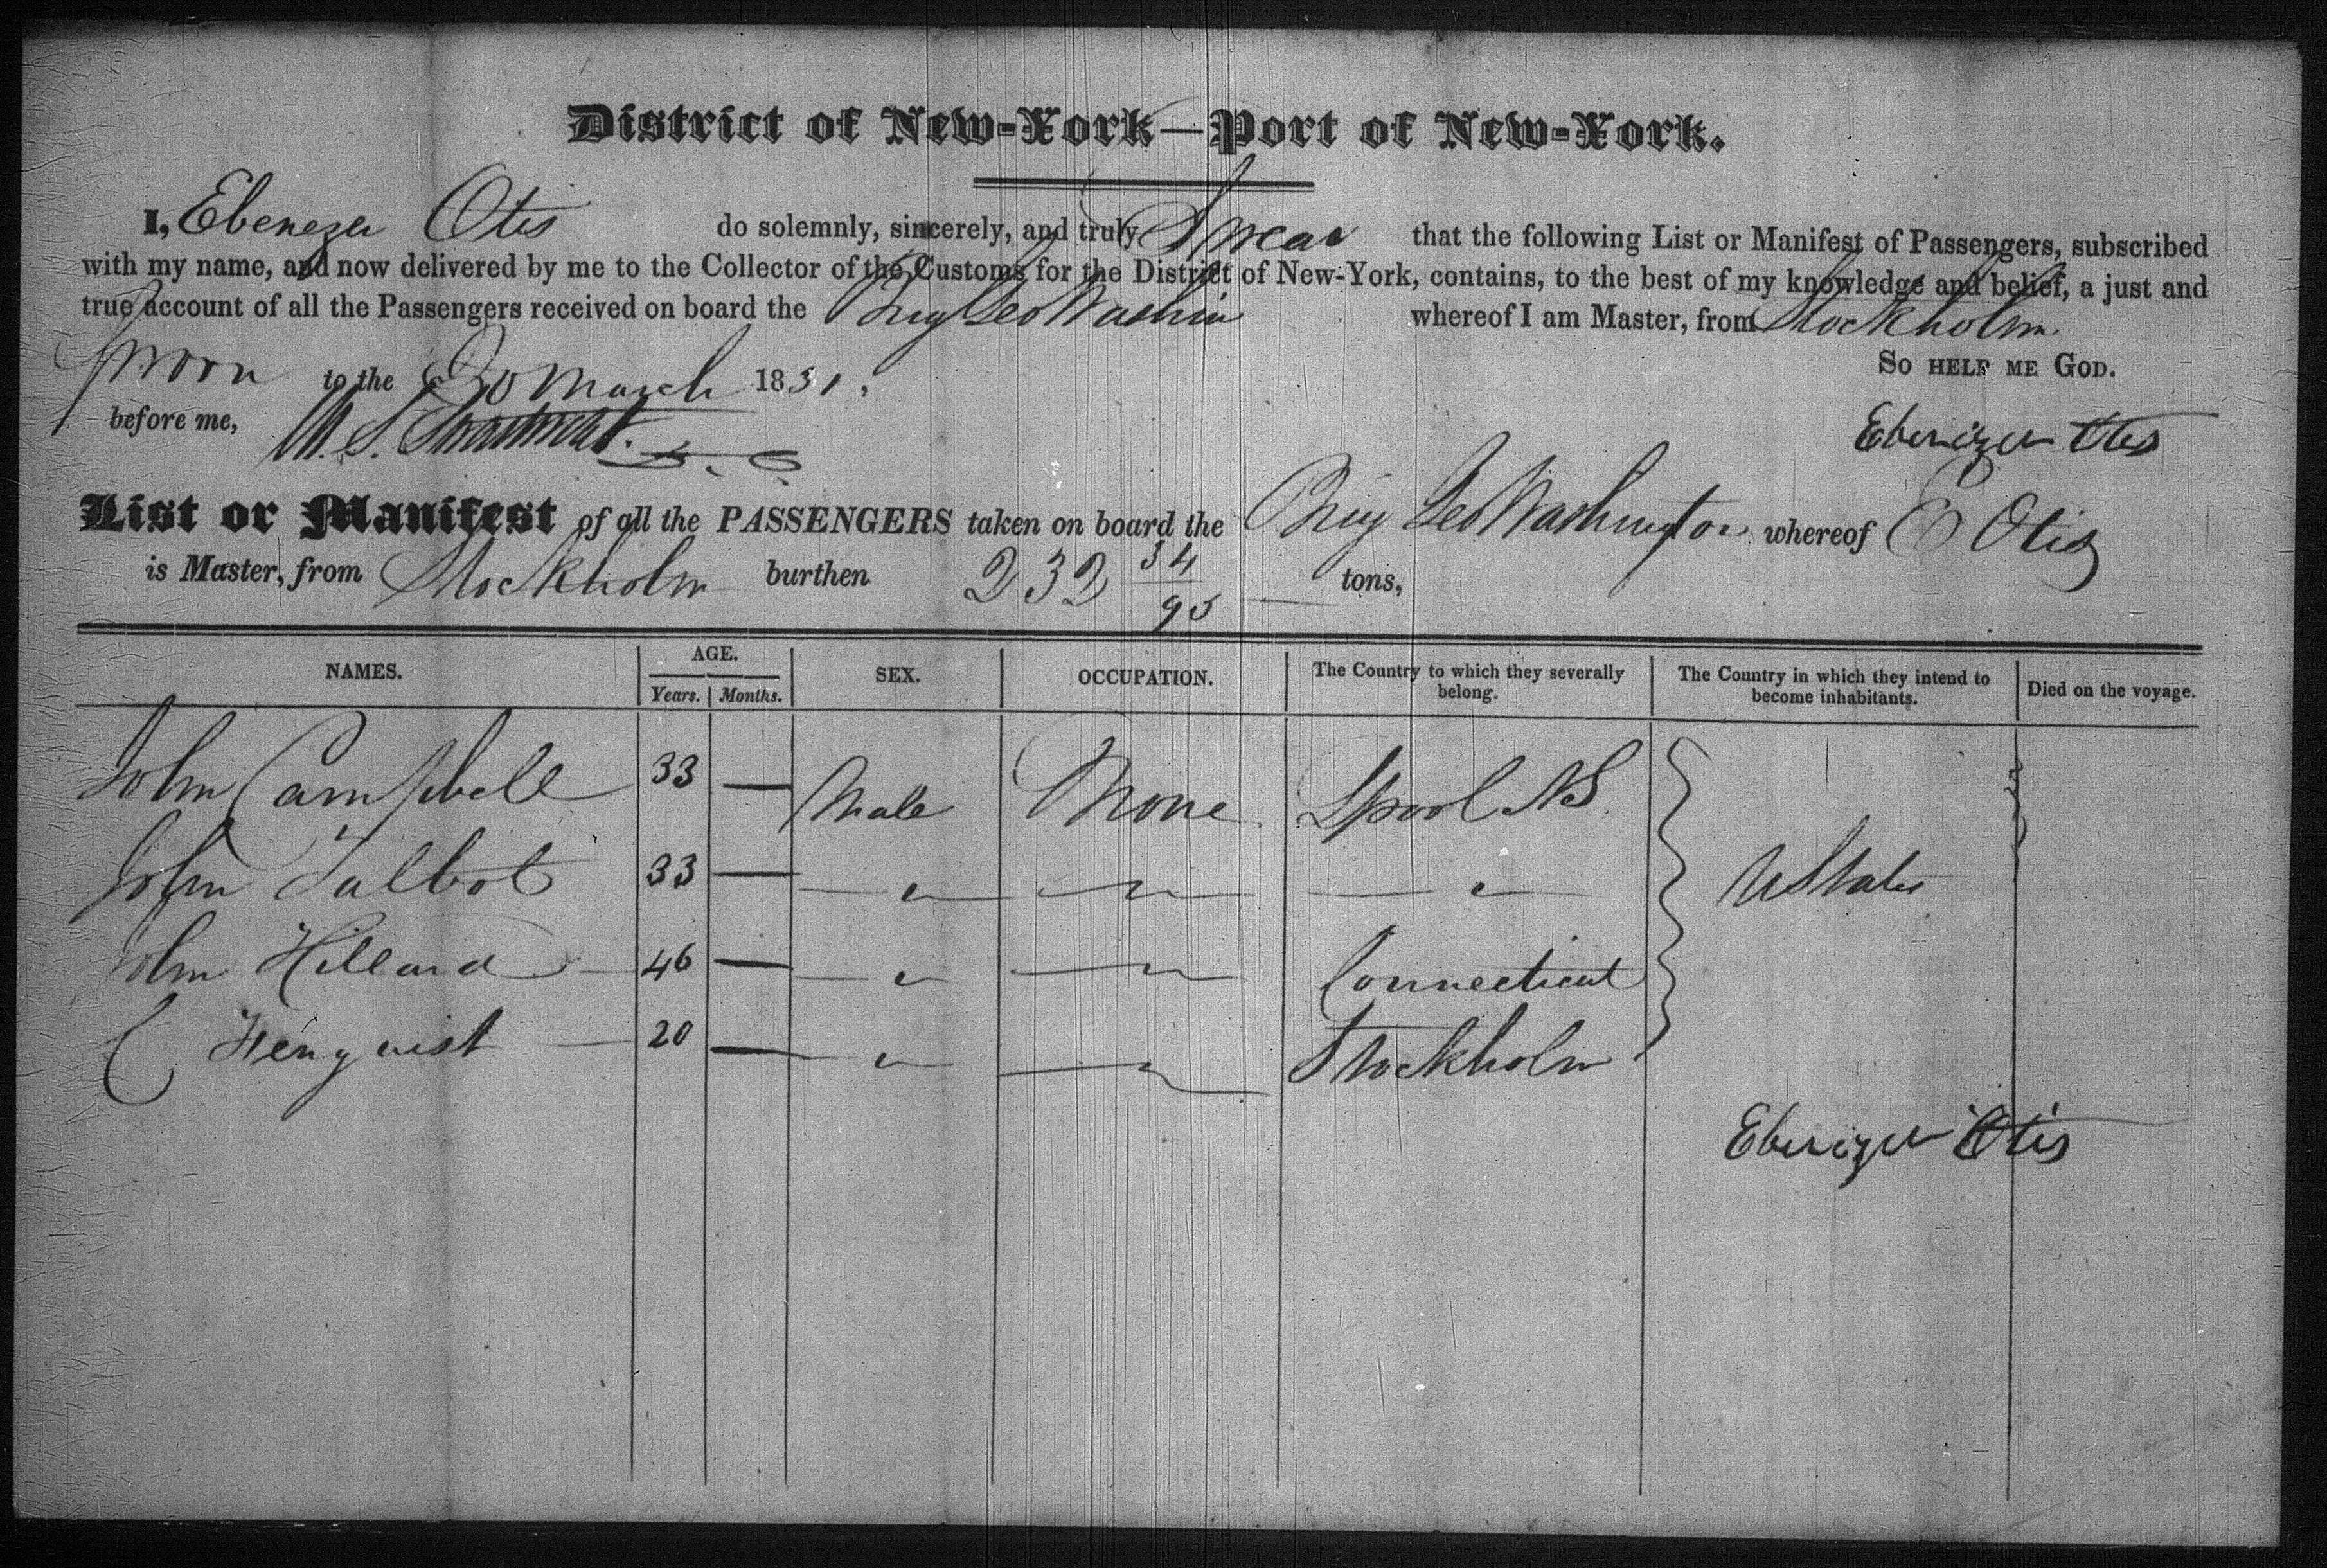 District of New-York—Port of New-York.
I, Ebenezer Otis do solemnly, sincerely, and truly Swear that the following List or Manifest of Passengers, subscribed
with my name, and now delivered by me to the Collector of the Customs for the District of New-York, contains, to the best of my knowledge and belief, a just and
true account of all the Passengers received on board the Brig Geo Washin whereof I am Master, from Stockholm
So help me God.
Sworn to the 30 March 1831,
before me,
Ebenezer Otis
List or Manifest of all the PASSENGERS taken on board the Brig Geo Washington whereof E Otis
is Master, from Stockholm burthen 232 34/95 tons,
NAMES. AGE. SEX. OCCUPATION. The Country to which they severally belong. The Country in which they intend to become inhabitants. Died on the voyage.
Years. Months.
John Campbell 33 — Male None Lpool NS
John Talbot 33 — " " " UStates
John Hillard 46 — " " Connecticut
C 20 — " " Stockholm
Ebenezer Otis